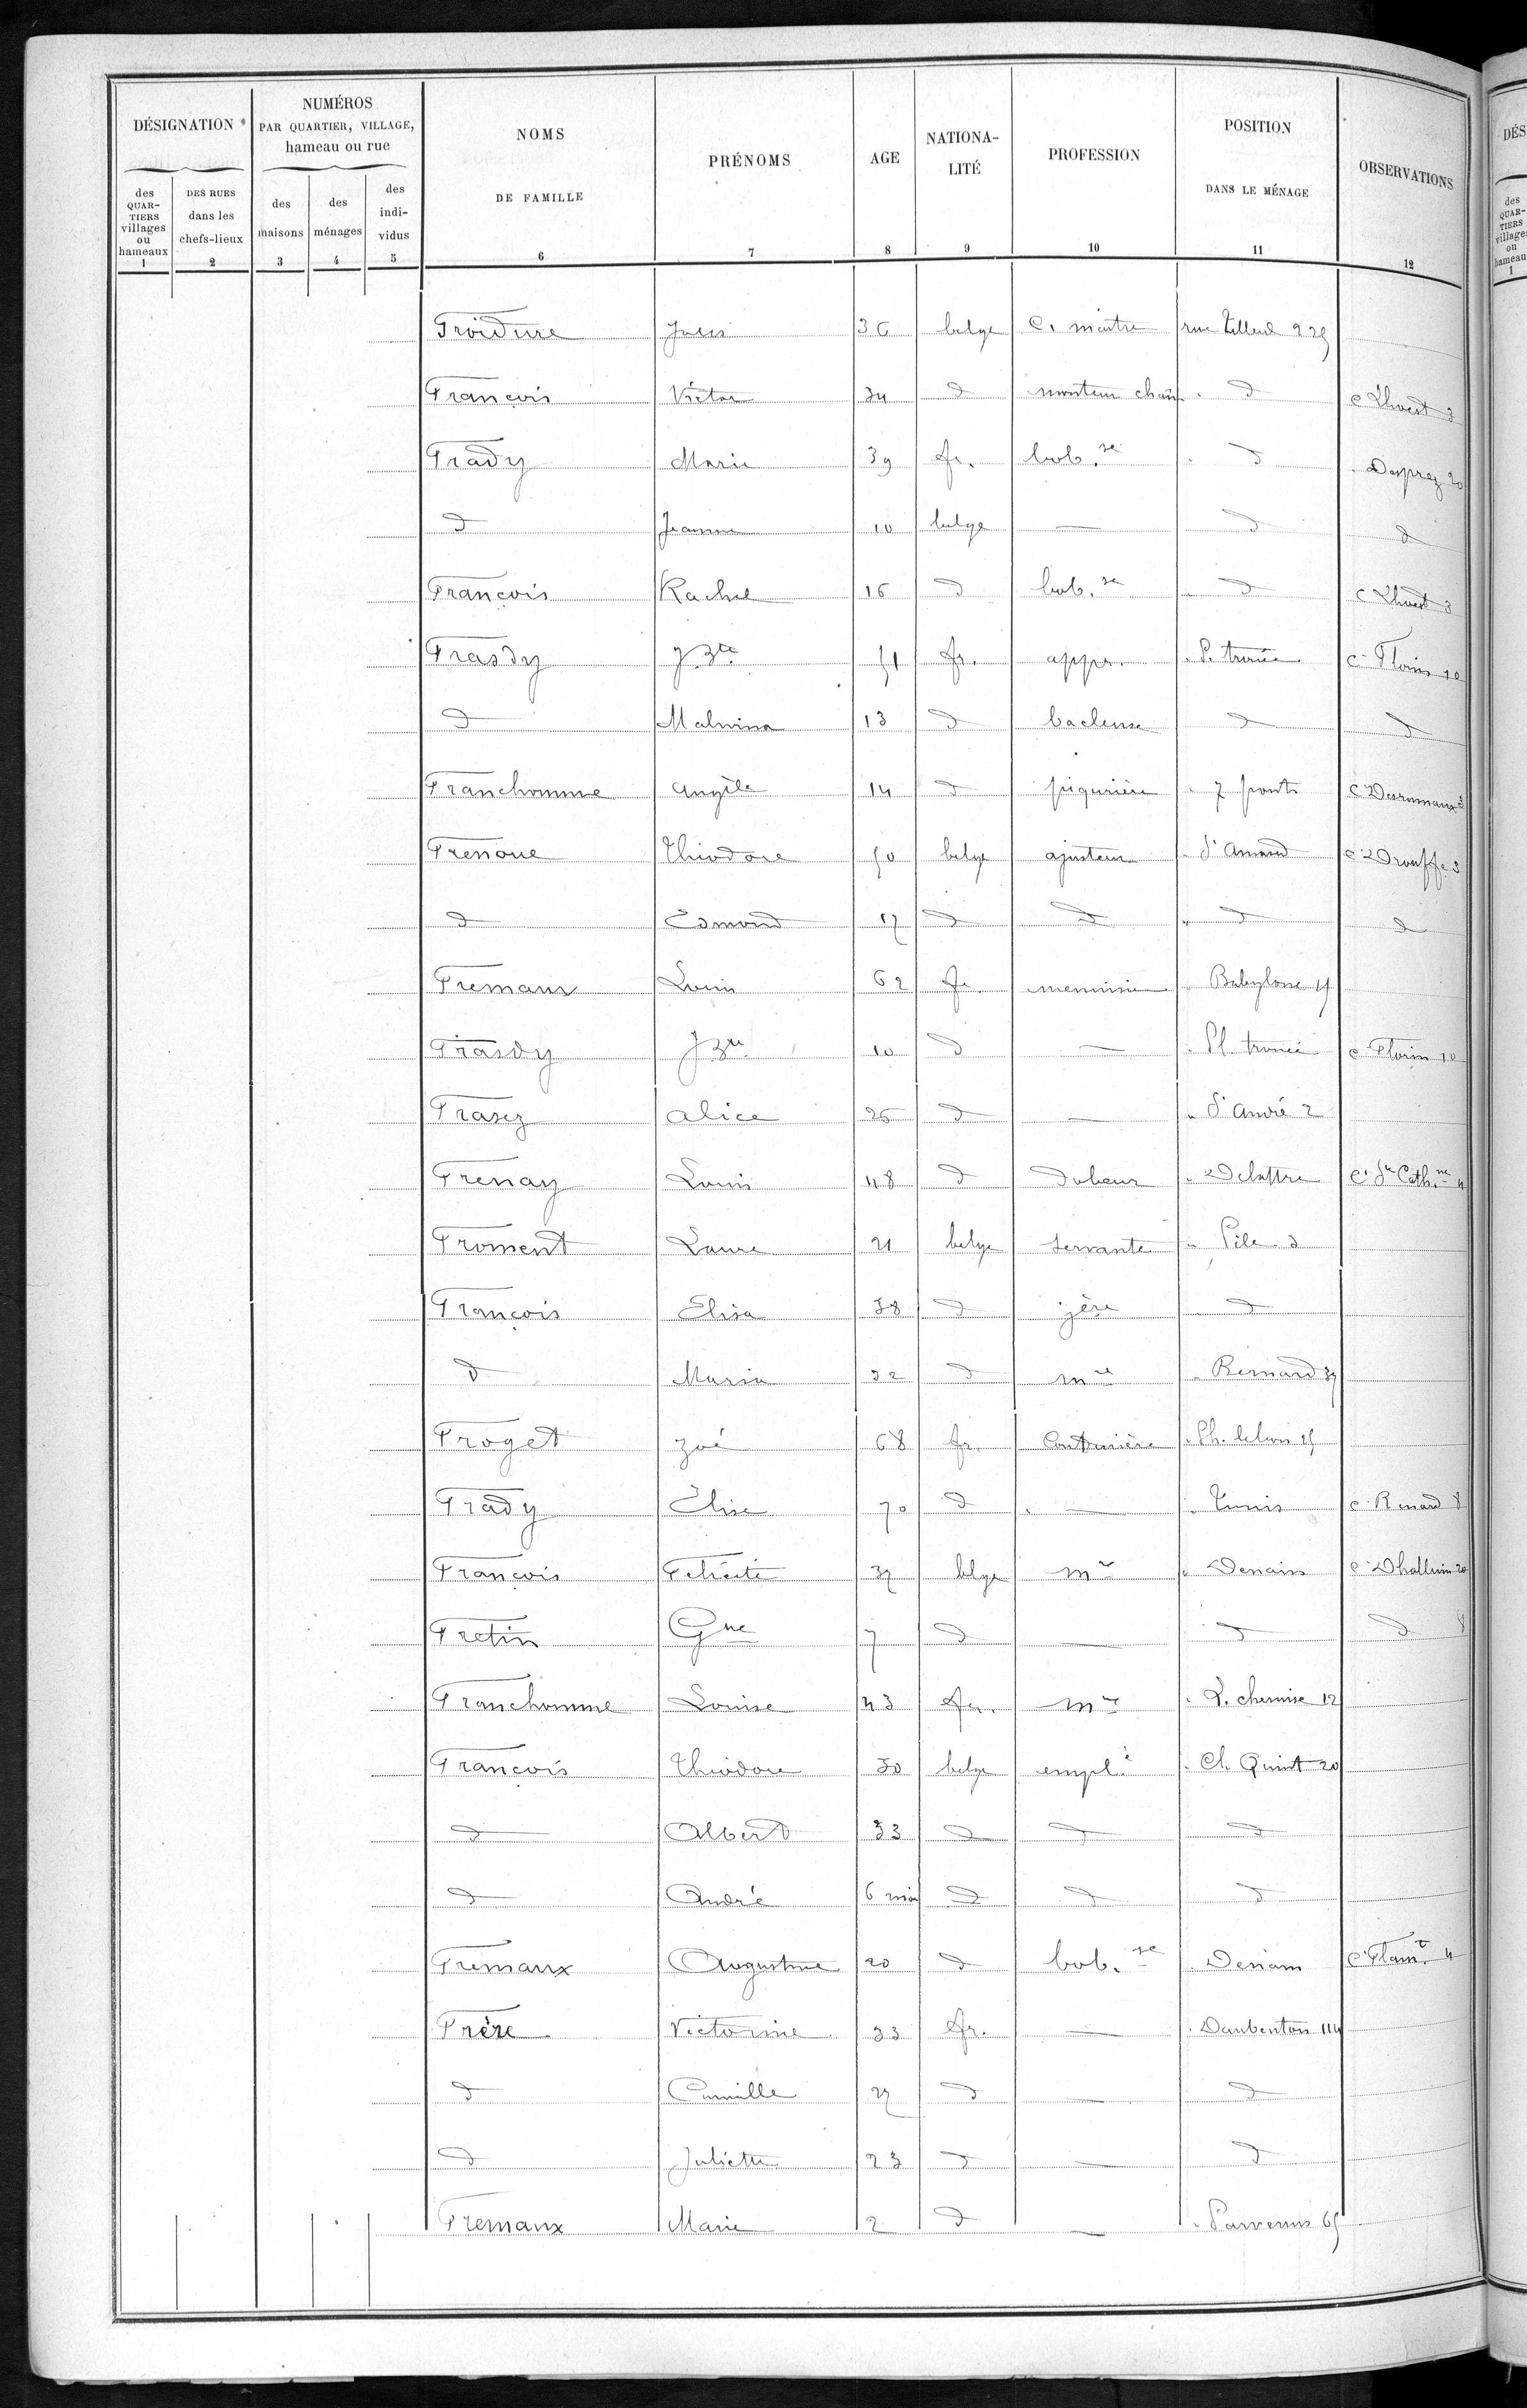 DÉSIGNATION
NUMÉROS
PAR QUARTIER, VILLAGE,
hameau ou rue
NOMS
DE FAMILLE
PRÉNOMS
AGE
NATIONA-
LITÉ
PROFESSION
POSITION
DANS LE MÉNAGE
OBSERVATIONS
des
QUAR-
TIERS
villages
ou
hameaux
DES RUES
dans les
chefs-lieux
des
maisons
des
ménages
des
indi-
vidus
1 2 3 4 5 6 7 8 9 10 11 12
Froidure Jules 36 belge rue Tilleul 225
François Victor 34 d monteur d
Frady Marie 39 fr. bob.se d Desprez 20
d Jeanne 10 belge — d d
François Rachel 16 d bob.se d
Frasdy 51 fr. appr. P. trouée c. Florin 10
d Malvina 13 d d d
Franchomme Angèle 14 d piqurière 7 ponts
Frenoue Théodore 50 belge ajusteur St Amand c. Drouffe 3
d Edmond 17 d d d d
Fremaux Louis 62 fr. menuisier Babylone 15
Frasdy 10 d — Pl. trouée c. Florin 10
Frasez alice 26 d — St André 2
Frenay Louis 48 d Delattre c. Ste Cath.ne 4
Froment Laure 21 belge servante Pile d
François Elisa 38 d jère d
d Maria 32 d me Bernard 37
Froget Zoé 68 fr. Couturière
Frady Elise 70 d — Tunis c. Renard 8
François Félicité 37 blge me Denain c. Dhalluin 20
Fretin Gne 7 d — d d 8
Franchomme Louise 43 fr. me L. chemise 12
François Théodore 30 belge empl.é Ch. Quint 20
d Albert 33 d d d
d André 6 mois d d d
Fremaux Augustine 20 d bob.se Denain c. Flamt 4
Frère Victorine 33 fr. — Daubenton 114
d Camille 27 d — d
d Juliette 23 d — d
Fremaux Marie 2 d — Parvenus 65